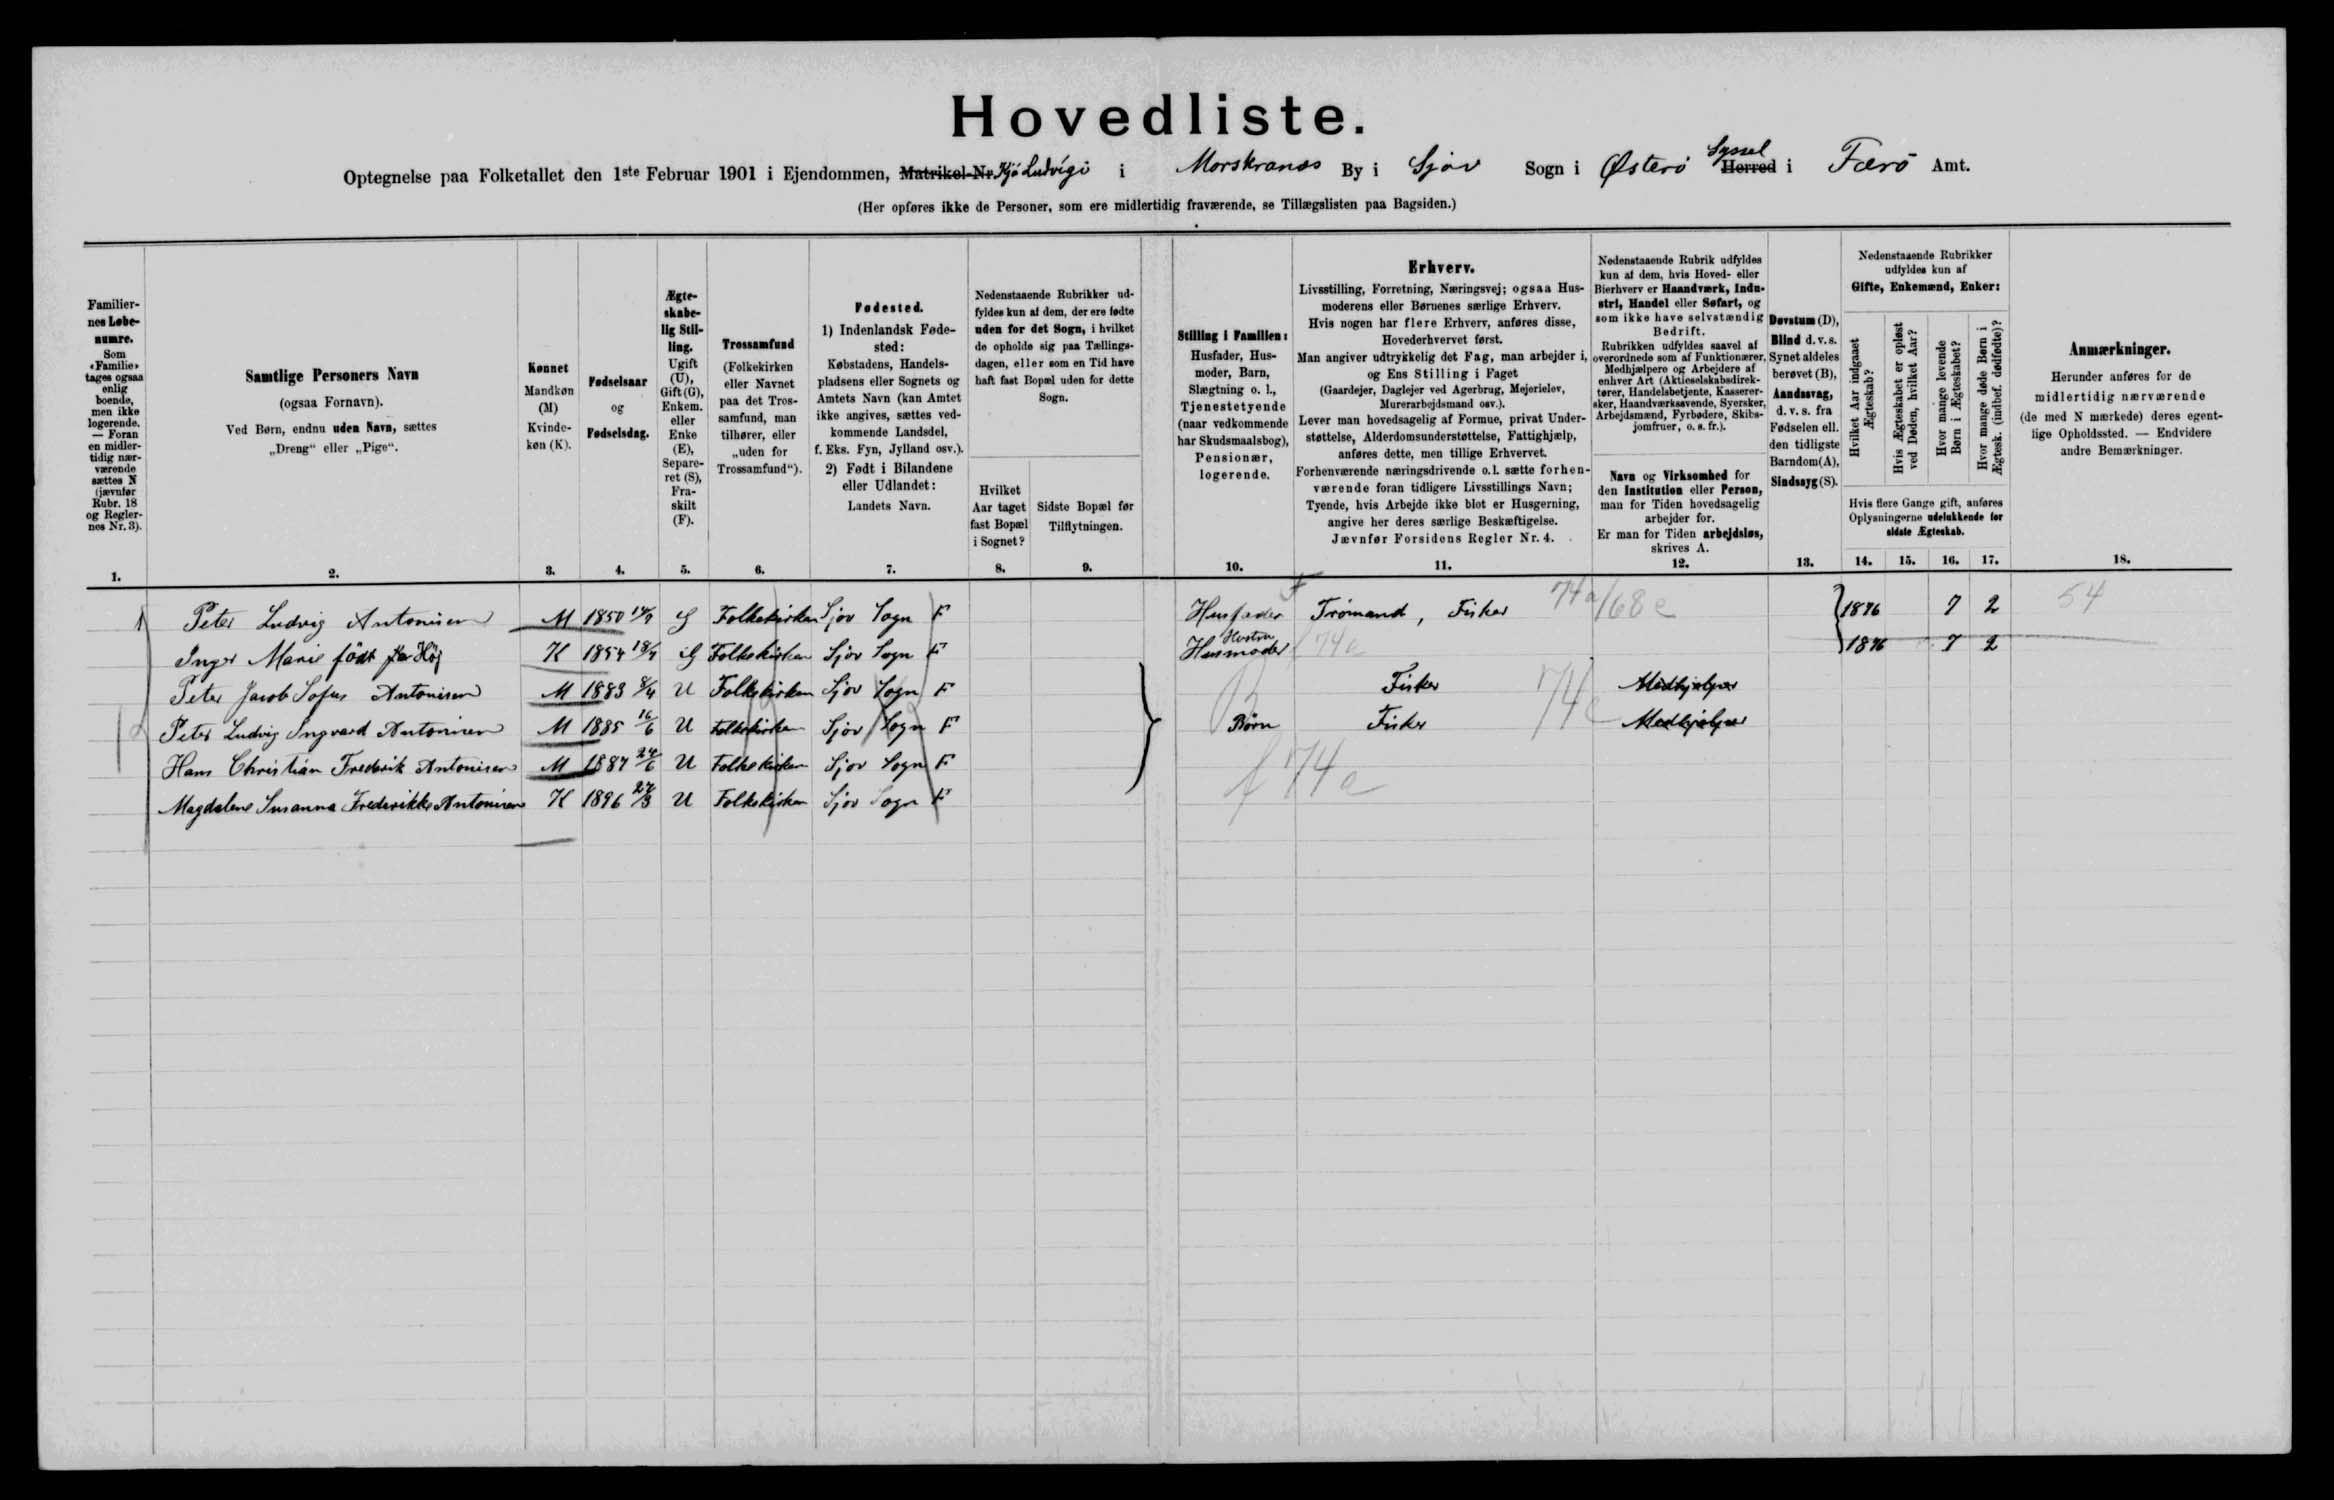 Hovedliste.
Optegnelse paa Folketallet den 1ste Februar 1901 i Ejendommen, Matrikel-Nr. Hjá Ludvígi i Morskranæs By i Sjov Sogn i Østerö Syssel Herred i Færö Amt.
(Her opføres ikke de Personer, som ere midlertidig fraværende, se Tillægslisten paa Bagsiden.)
Familiernes Løbenumre.
Som «Familie» tages ogsaa enlig boende, men ikke logerende. — Foran en midlertidig nærværende sættes N (jævnfør Rubr. 18 og Reglernes Nr. 3).
1.
Samtlige Personers Navn
(ogsaa Fornavn).
Ved Børn, endnu uden Navn, sættes
„Dreng“ eller „Pige“.
2.
Kønnet
Mandkøn (M)
Kvindekøn (K).
3.
Fødselsaar
og
Fødselsdag.
4.
Ægteskabelig Stilling.
Ugift (U), Gift (G), Enkem. eller Enke (E), Separeret (S), Fraskilt (F).
5.
Trossamfund
(Folkekirken eller Navnet paa det Trossamfund, man tilhører, eller „uden for Trossamfund“).
6.
Fødested.
1) Indenlandsk Fødested:
Købstadens, Handelspladsens eller Sognets og Amtets Navn (kan Amtet ikke angives, sættes vedkommende Landsdel, f. Eks. Fyn, Jylland osv.).
2) Født i Bilandene eller Udlandet:
Landets Navn.
7.
Nedenstaaende Rubrikker udfyldes kun af dem, der ere fødte uden for det Sogn, i hvilket de opholde sig paa Tællingsdagen, eller som en Tid have haft fast Bopæl uden for dette Sogn.
Hvilket Aar taget fast Bopæl i Sognet?
8.
Sidste Bopæl før Tilflytningen.
9.
Stilling i Familien:
Husfader, Husmoder, Barn, Slægtning o. l., Tjenestetyende (naar vedkommende har Skudsmaalsbog), Pensionær, logerende.
10.
Erhverv.
Livsstilling, Forretning, Næringsvej; ogsaa Husmoderens eller Børnenes særlige Erhverv.
Hvis nogen har flere Erhverv, anføres disse, Hovederhvervet først.
Man angiver udtrykkelig det Fag, man arbejder i, og Ens Stilling i Faget
(Gaardejer, Daglejer ved Agerbrug, Mejerielev, Murerarbejdsmand osv.).
Lever man hovedsagelig af Formue, privat Understøttelse, Alderdomsunderstøttelse, Fattighjælp, anføres dette, men tillige Erhvervet.
Forhenværende næringsdrivende o. l. sætte forhenværende foran tidligere Livsstillings Navn;
Tyende, hvis Arbejde ikke blot er Husgerning, angive her deres særlige Beskæftigelse.
Jævnfør Forsidens Regler Nr. 4.
11.
Nedenstaaende Rubrik udfyldes kun af dem, hvis Hoved- eller Bierhverv er Haandværk, Industri, Handel eller Søfart, og som ikke have selvstændig Bedrift.
Rubrikken udfyldes saavel af overordnede som af Funktionærer, Medhjælpere og Arbejdere af enhver Art (Aktieselskabsdirektører, Handelsbetjente, Kasserersker, Haandværkssvende, Syersker, Arbejdsmænd, Fyrbødere, Skibsjomfruer, o. s. fr.).
Navn og Virksomhed for den Institution eller Person, man for Tiden hovedsagelig arbejder for.
Er man for Tiden arbejdsløs, skrives A.
12.
Døvstum (D), Blind d. v. s. Synet aldeles berøvet (B), Aandssvag, d. v. s. fra Fødselen ell. den tidligste Barndom (A), Sindssyg (S).
13.
Nedenstaaende Rubrikker udfyldes kun af
Gifte, Enkemænd, Enker:
Hvilket Aar indgaaet Ægteskab?
Hvis Ægteskabet er opløst ved Døden, hvilket Aar?
Hvor mange levende Børn i Ægteskabet?
Hvor mange døde Børn i Ægtesk. (indbef. dødfødte)?
Hvis flere Gange gift, anføres Oplysningerne udelukkende for sidste Ægteskab.
14. 15. 16. 17.
Anmærkninger.
Herunder anføres for de midlertidig nærværende (de med N mærkede) deres egentlige Opholdssted. — Endvidere andre Bemærkninger.
18.
1 Peter Ludvig Antonisen M 1850 G Folkekirken Sjov Sogn F Husfader Trømand, Fisker 74a/68e 1876 7 2 54
Inger Marie födt Høj K 1854 G Folkekirken Sjov Sogn F Hustru Husmoder 74a 1876 7 2
Peter Jacob Sofus Antonisen M 1883 8/4 U Folkekirken Sjov Sogn F Fisker Medhjælper
Peter Ludvig Ingvard Antonisen M 1885 16/6 U Folkekirken Sjov Sogn F Børn Fisker 74c Medhjælper
Hans Christian Frederik Antonisen M 1887 24/6 U Folkekirken Sjov Sogn F
Magdalene Susanna Frederikke Antonisen K 1896 27/3 U Folkekirken Sjov Sogn F
f 74a